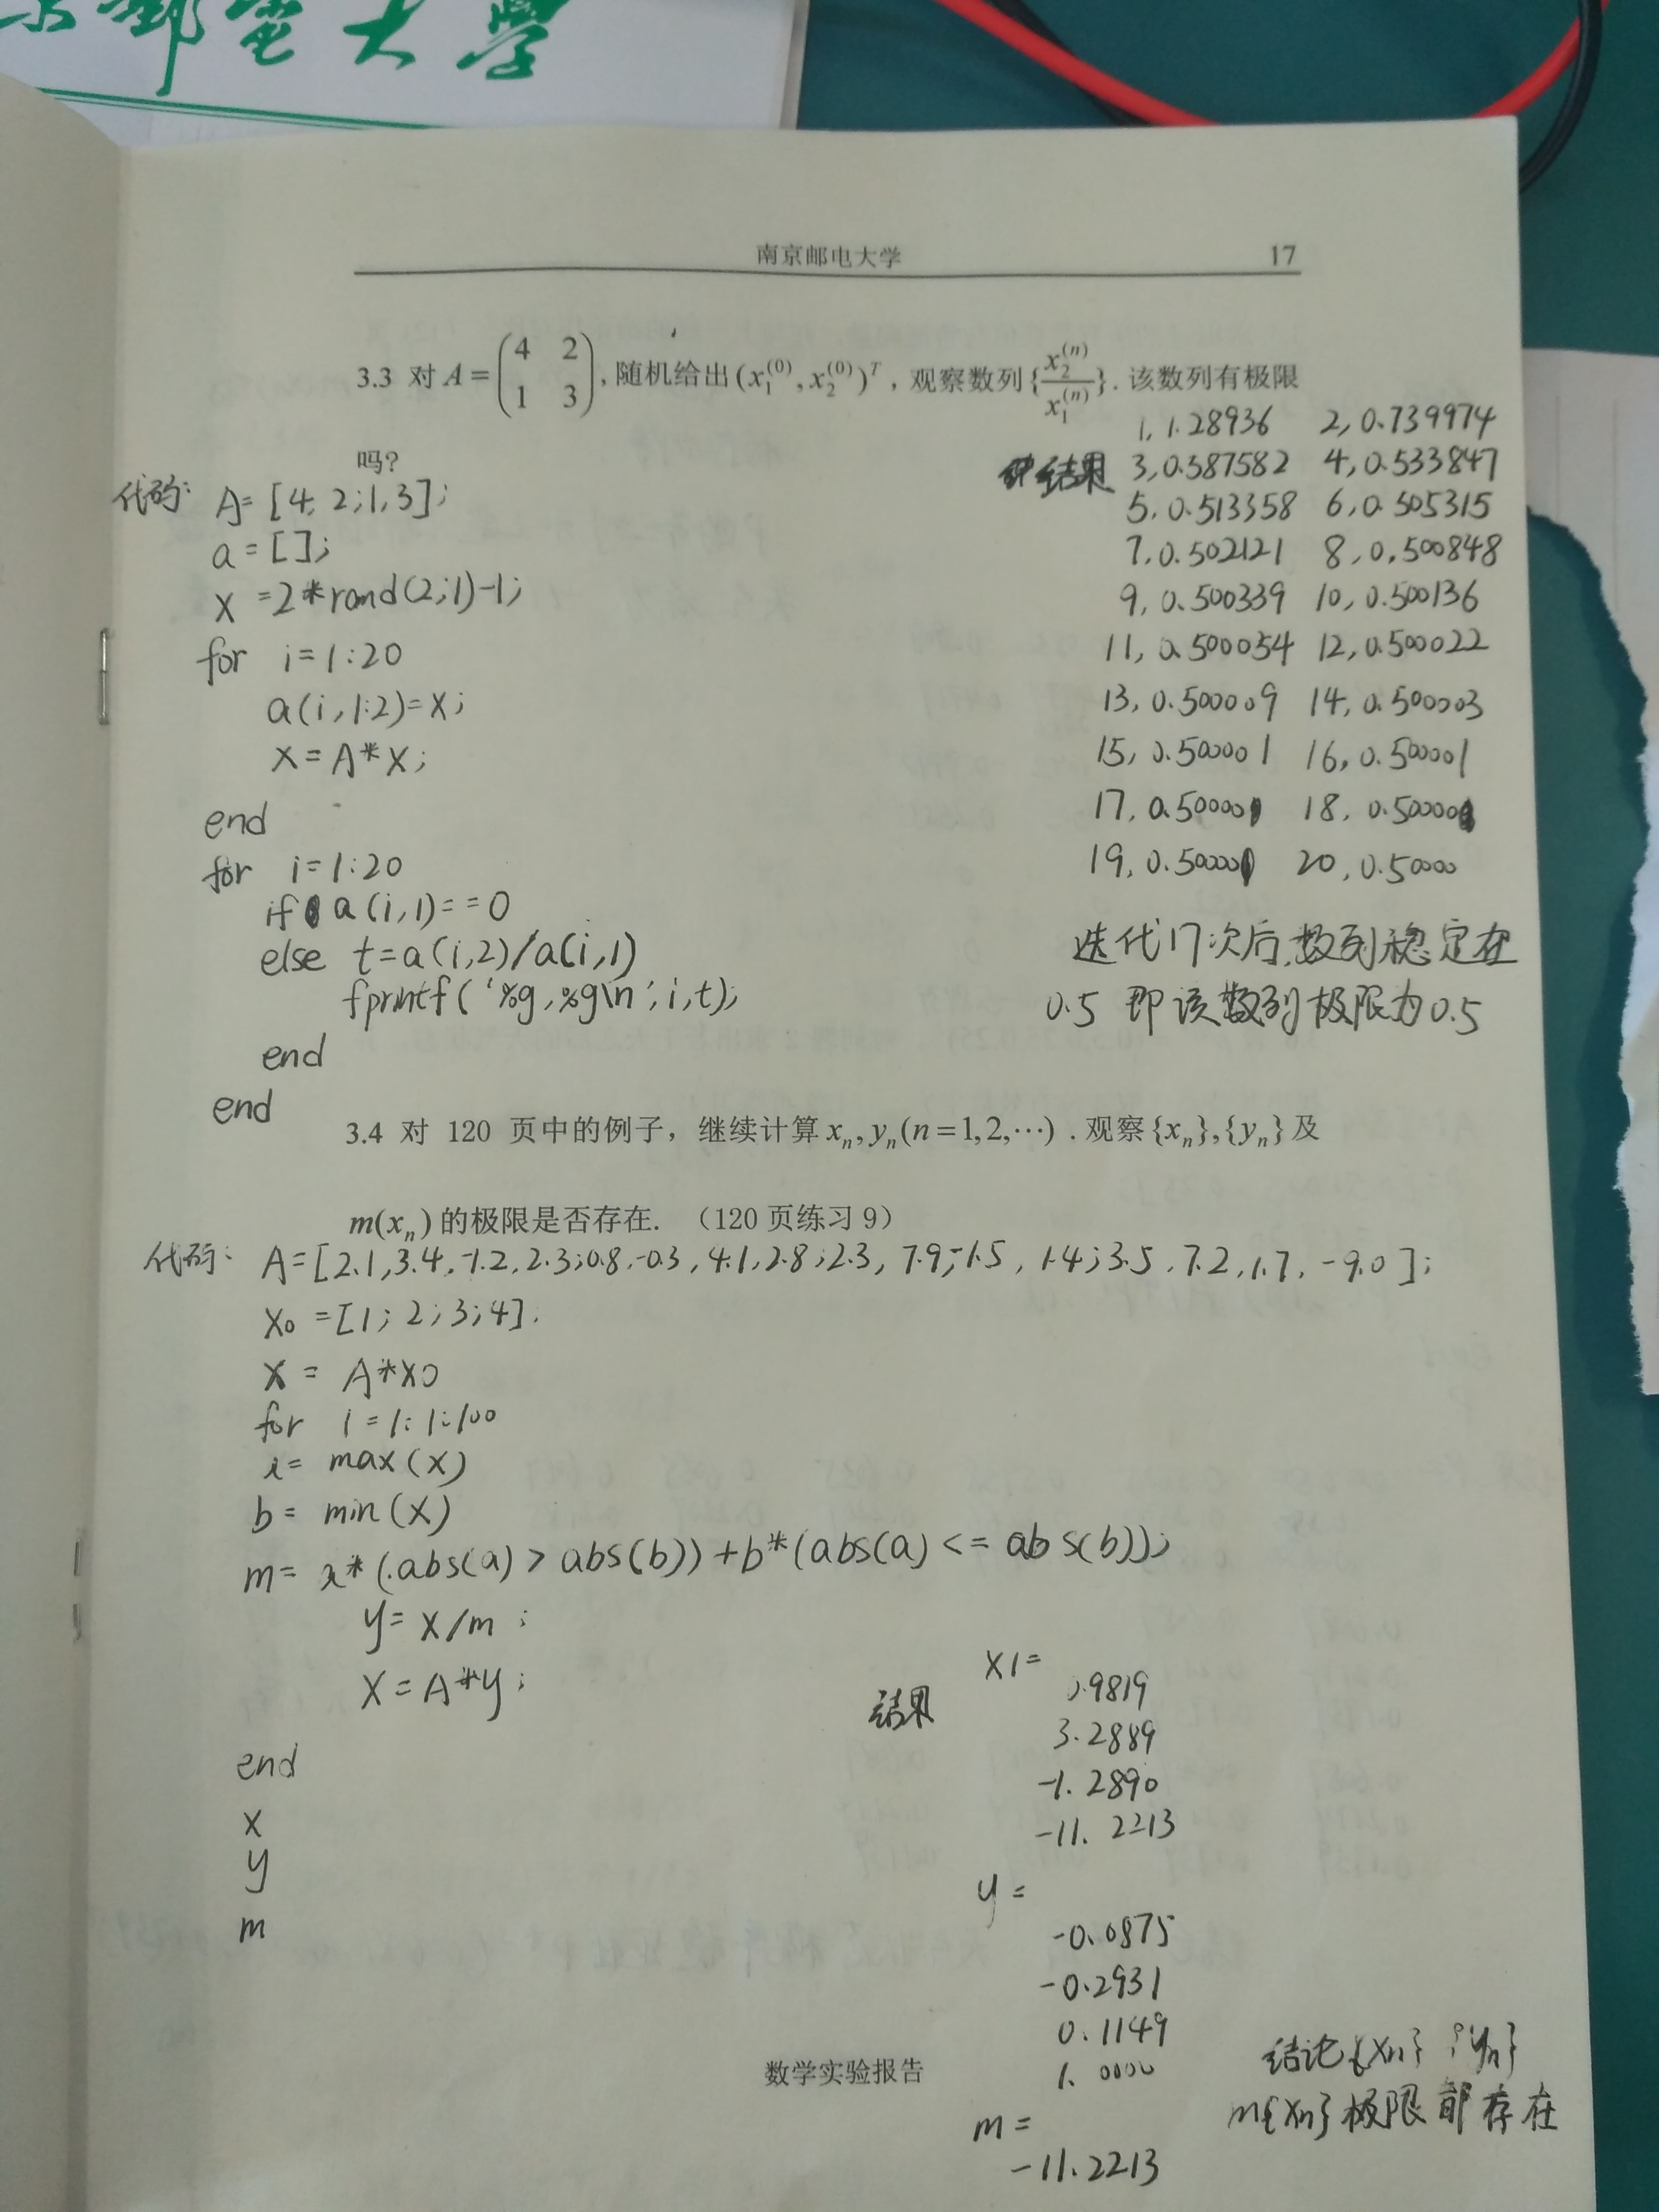 郵電大學
南京邮电大学 17
3.3 对 A = (4 2; 1 3), 随机给出 (x₁⁽⁰⁾, x₂⁽⁰⁾)ᵀ , 观察数列 {x₂⁽ⁿ⁾/x₁⁽ⁿ⁾}. 该数列有极限
吗?
代码: A=[4,2;1,3];
a=[];
x=2*rand(2;1)-1;
for i=1:20
a(i,1:2)=x;
x=A*x;
end
for i=1:20
if a(i,1)==0
else t=a(i,2)/a(i,1)
fprintf('%g,%g\n',i,t);
end
end
结果
1, 1.28936 2, 0.739974
3, 0.587582 4, 0.533847
5, 0.513358 6, 0.505315
7, 0.502121 8, 0.500848
9, 0.500339 10, 0.500136
11, 0.500054 12, 0.500022
13, 0.500009 14, 0.500003
15, 0.500001 16, 0.500001
17, 0.50000 18, 0.50000
19, 0.50000 20, 0.50000
迭代17次后,数列稳定在
0.5 即该数列极限为0.5
3.4 对 120 页中的例子，继续计算 xₙ, yₙ (n=1,2,⋯) . 观察 {xₙ},{yₙ} 及
m(xₙ) 的极限是否存在. （120 页练习 9）
代码: A=[2.1,3.4,-1.2,2.3;0.8,-0.3,4.1,2.8;2.3,7.9,-1.5,1.4;3.5,7.2,1.7,-9.0];
x0=[1;2;3;4];
x=A*x0
for i=1:1:100
a=max(x)
b=min(x)
m=a*(abs(a)>abs(b))+b*(abs(a)<=abs(b));
y=x/m;
x=A*y;
end
x
y
m
结果
x1=
0.9819
3.2889
-1.2890
-11.2213
y=
-0.0875
-0.2931
0.1149
1.0000
m=
-11.2213
结论{xn} {yn}
m{xn}极限都存在
数学实验报告